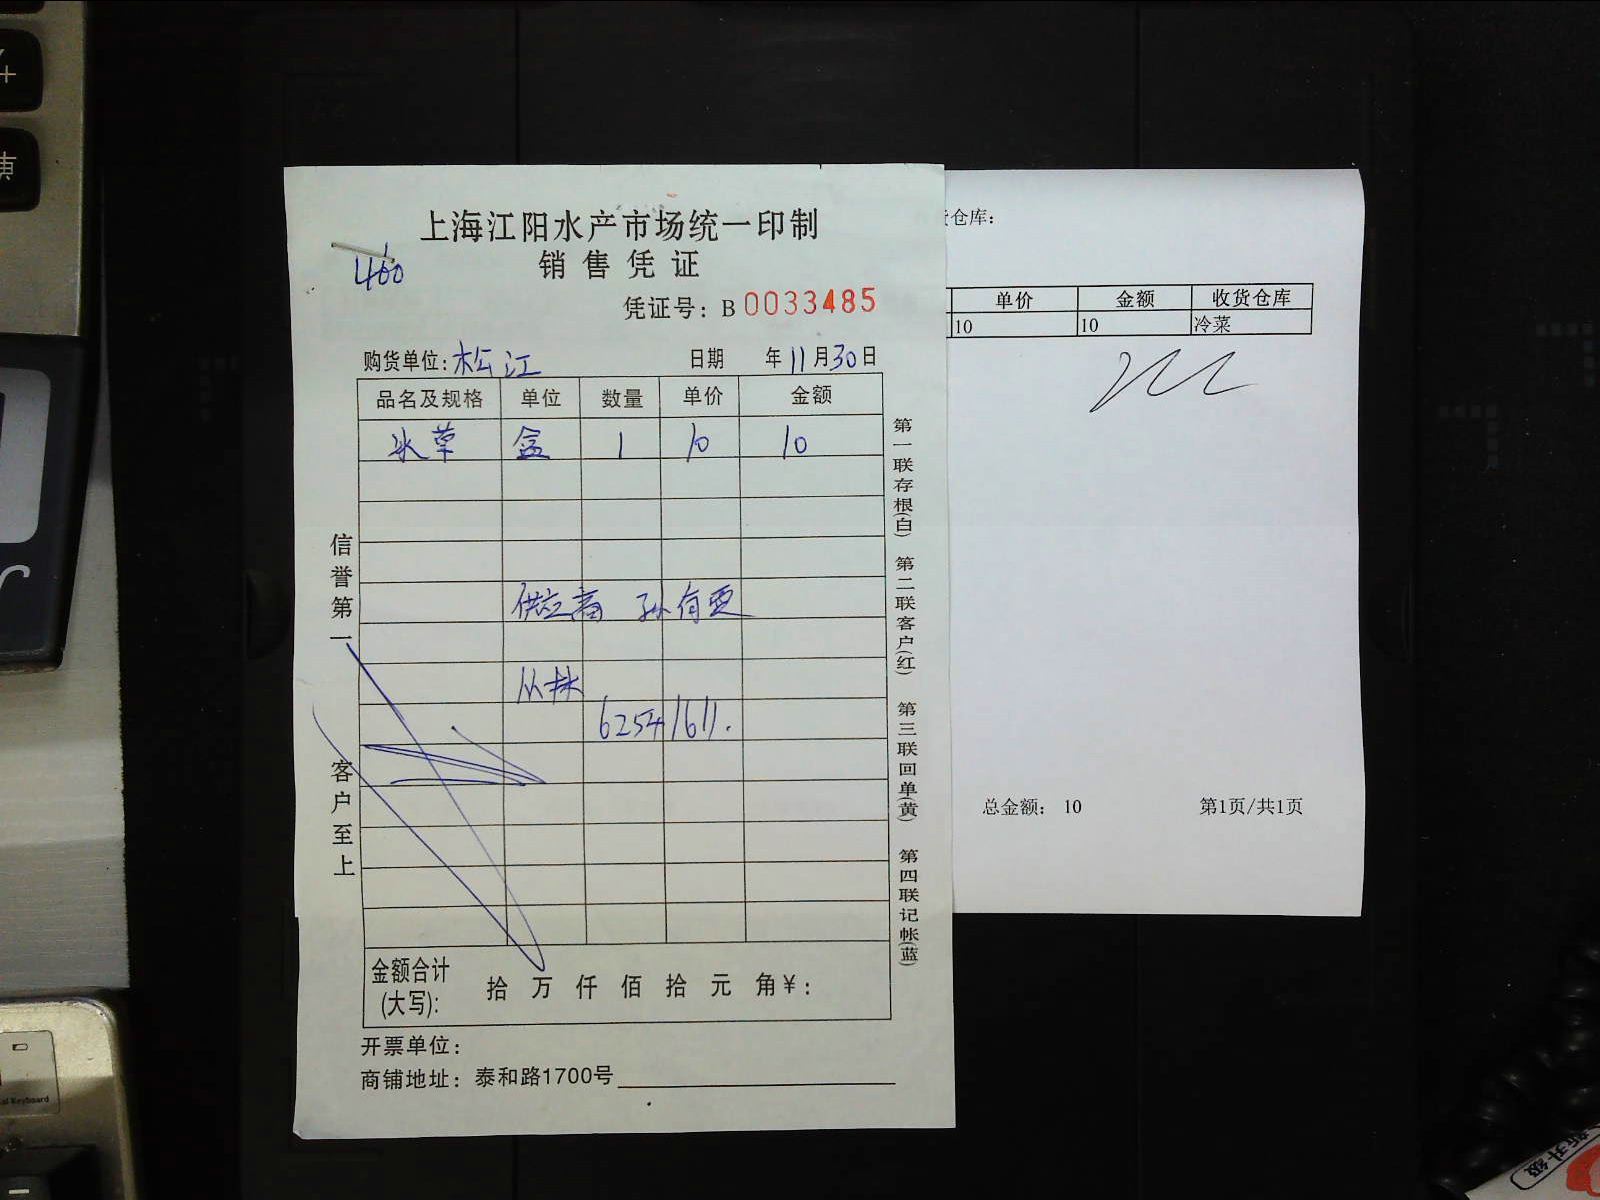 上海江阳水产市场统一印制
销售凭证
460
凭证号：B 0033485
购货单位：松江 日期 年11月30日
品名及规格 单位 数量 单价 金额
冰草 盒 1 10 10
供应商 孙有
丛林
62541611.
信誉第一 客户至上
第一联存根(白) 第二联客户(红) 第三联回单(黄) 第四联记帐(蓝)
金额合计(大写)： 拾 万 仟 佰 拾 元 角 ¥：
开票单位：
商铺地址：泰和路1700号
仓库：
单价 金额 收货仓库
10 10 冷菜
总金额： 10 第1页/共1页
新升级